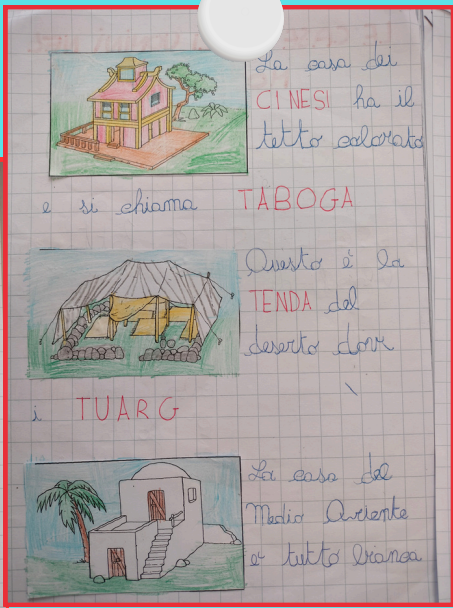 La casa dei
CINESI ha il
tetto colorato
e si chiama TABOGA
Questo è la
TENDA del
deserto dove
i TUARG
La casa del
Medio Oriente
e' tutto bianca